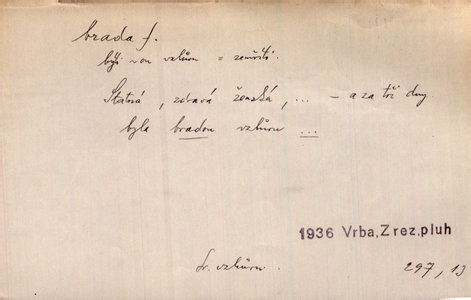 brada f.
býti vzhůru = zemříti.
Statná, zdravá ženská, ... – a za tři dny
byla bradou vzhůru ...
1936 Vrba, Zrez. pluh
vzhůru.
297, 13